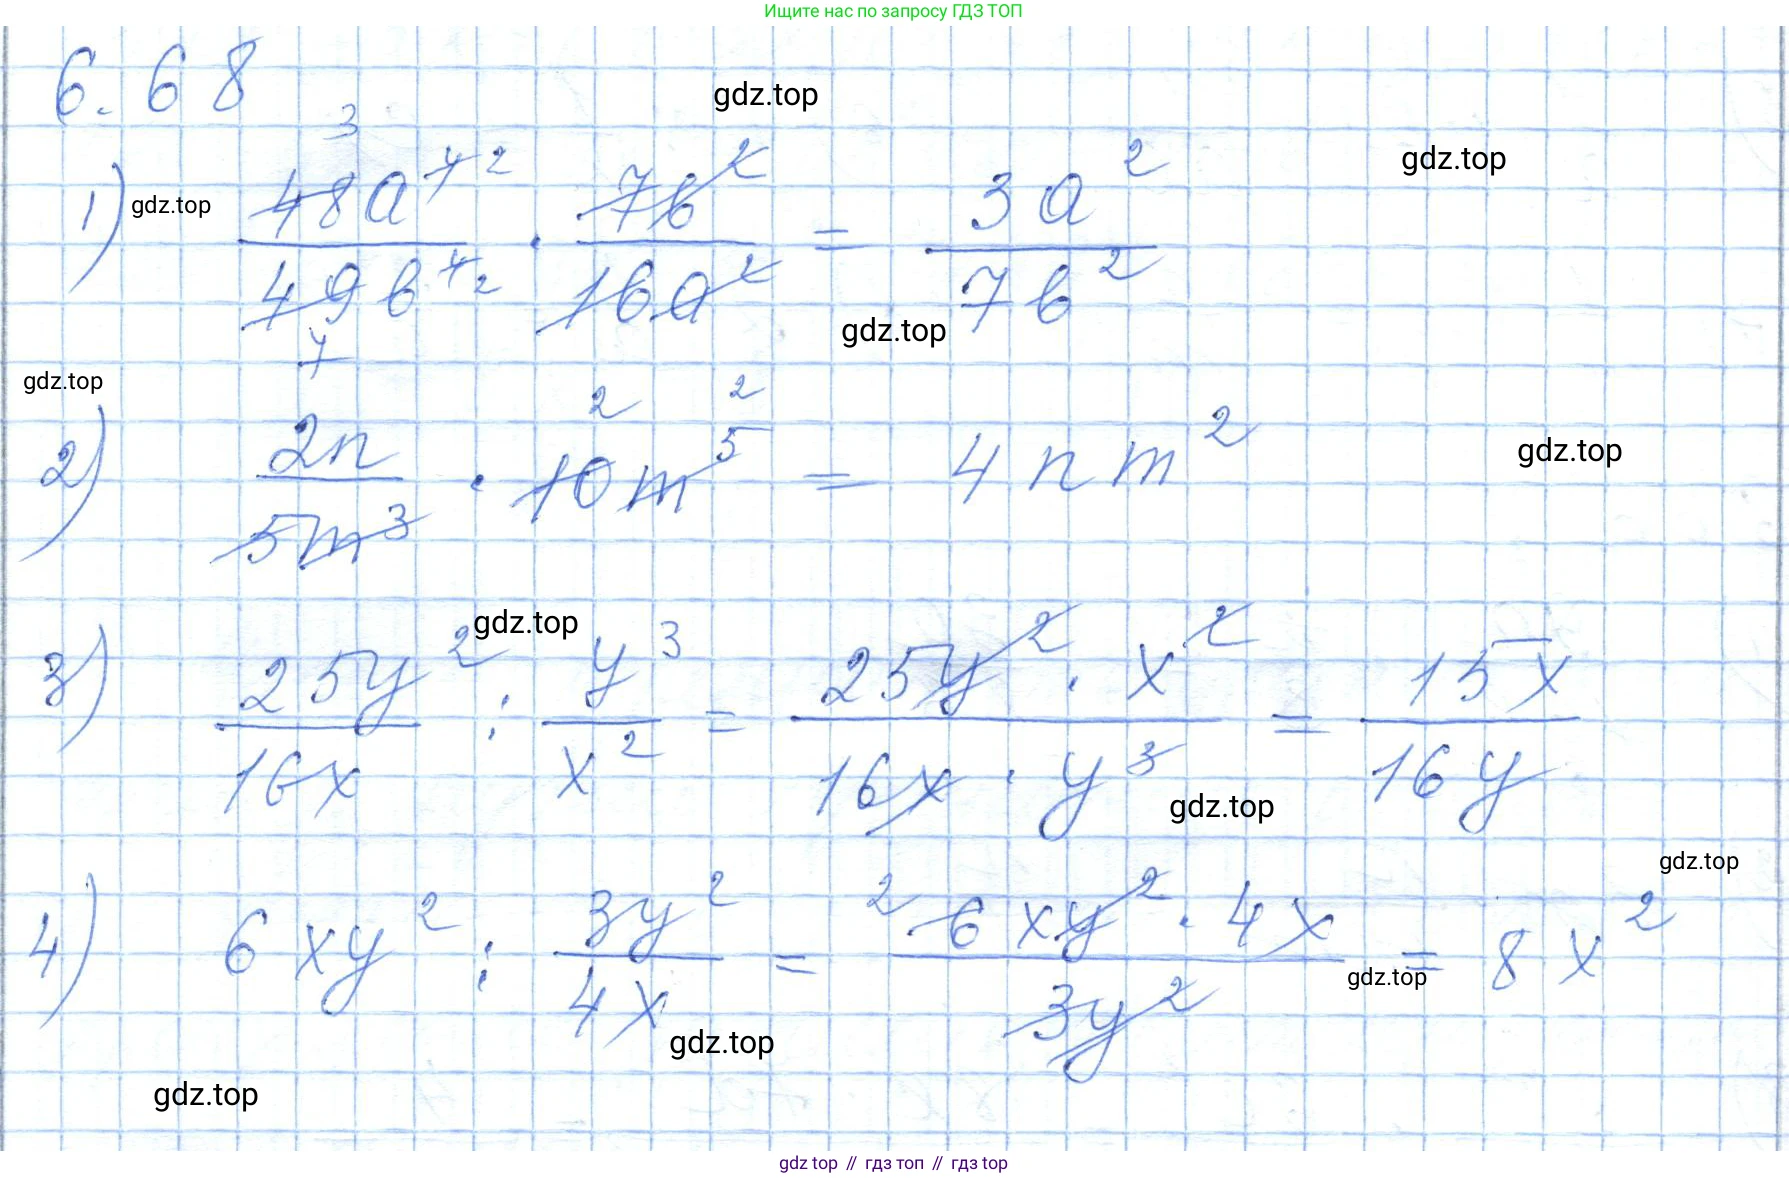 Ищите нас по запросу ГДЗ ТОП
6.68
gdz.top
gdz.top
1) gdz.top 48a^4 3 2 / 49b^4 7 2 · 7b^2 / 16a^2 = 3a^2 / 7b^2
gdz.top
gdz.top
2) 2n / 5m^3 · 10m^5 2 2 = 4nm^2
gdz.top
gdz.top
3) 25y^2 / 16x : y^3 / x^2 = 25y^2 · x^2 / 16x · y^3 = 15x / 16y
gdz.top
gdz.top
4) 6xy^2 : 3y^2 / 4x = 2 6xy^2 · 4x / 3y^2 = 8x^2
gdz.top
gdz.top
gdz.top
gdz top // гдз топ // гдз top